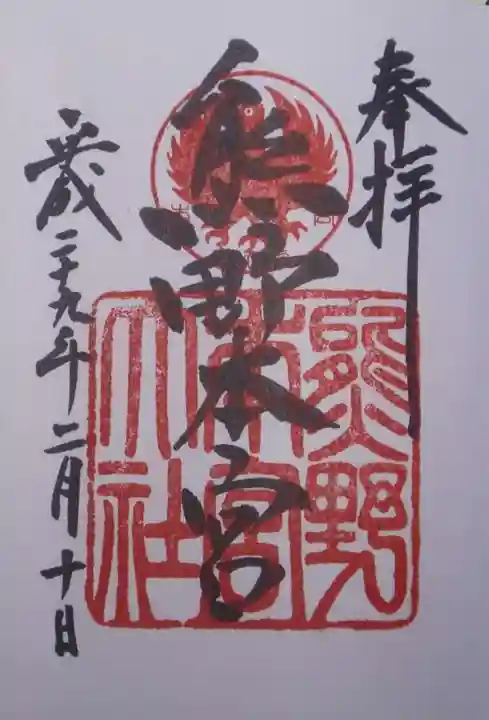 奉拝
熊野本宮
平成二十九年二月十日
熊野
本宮
大社